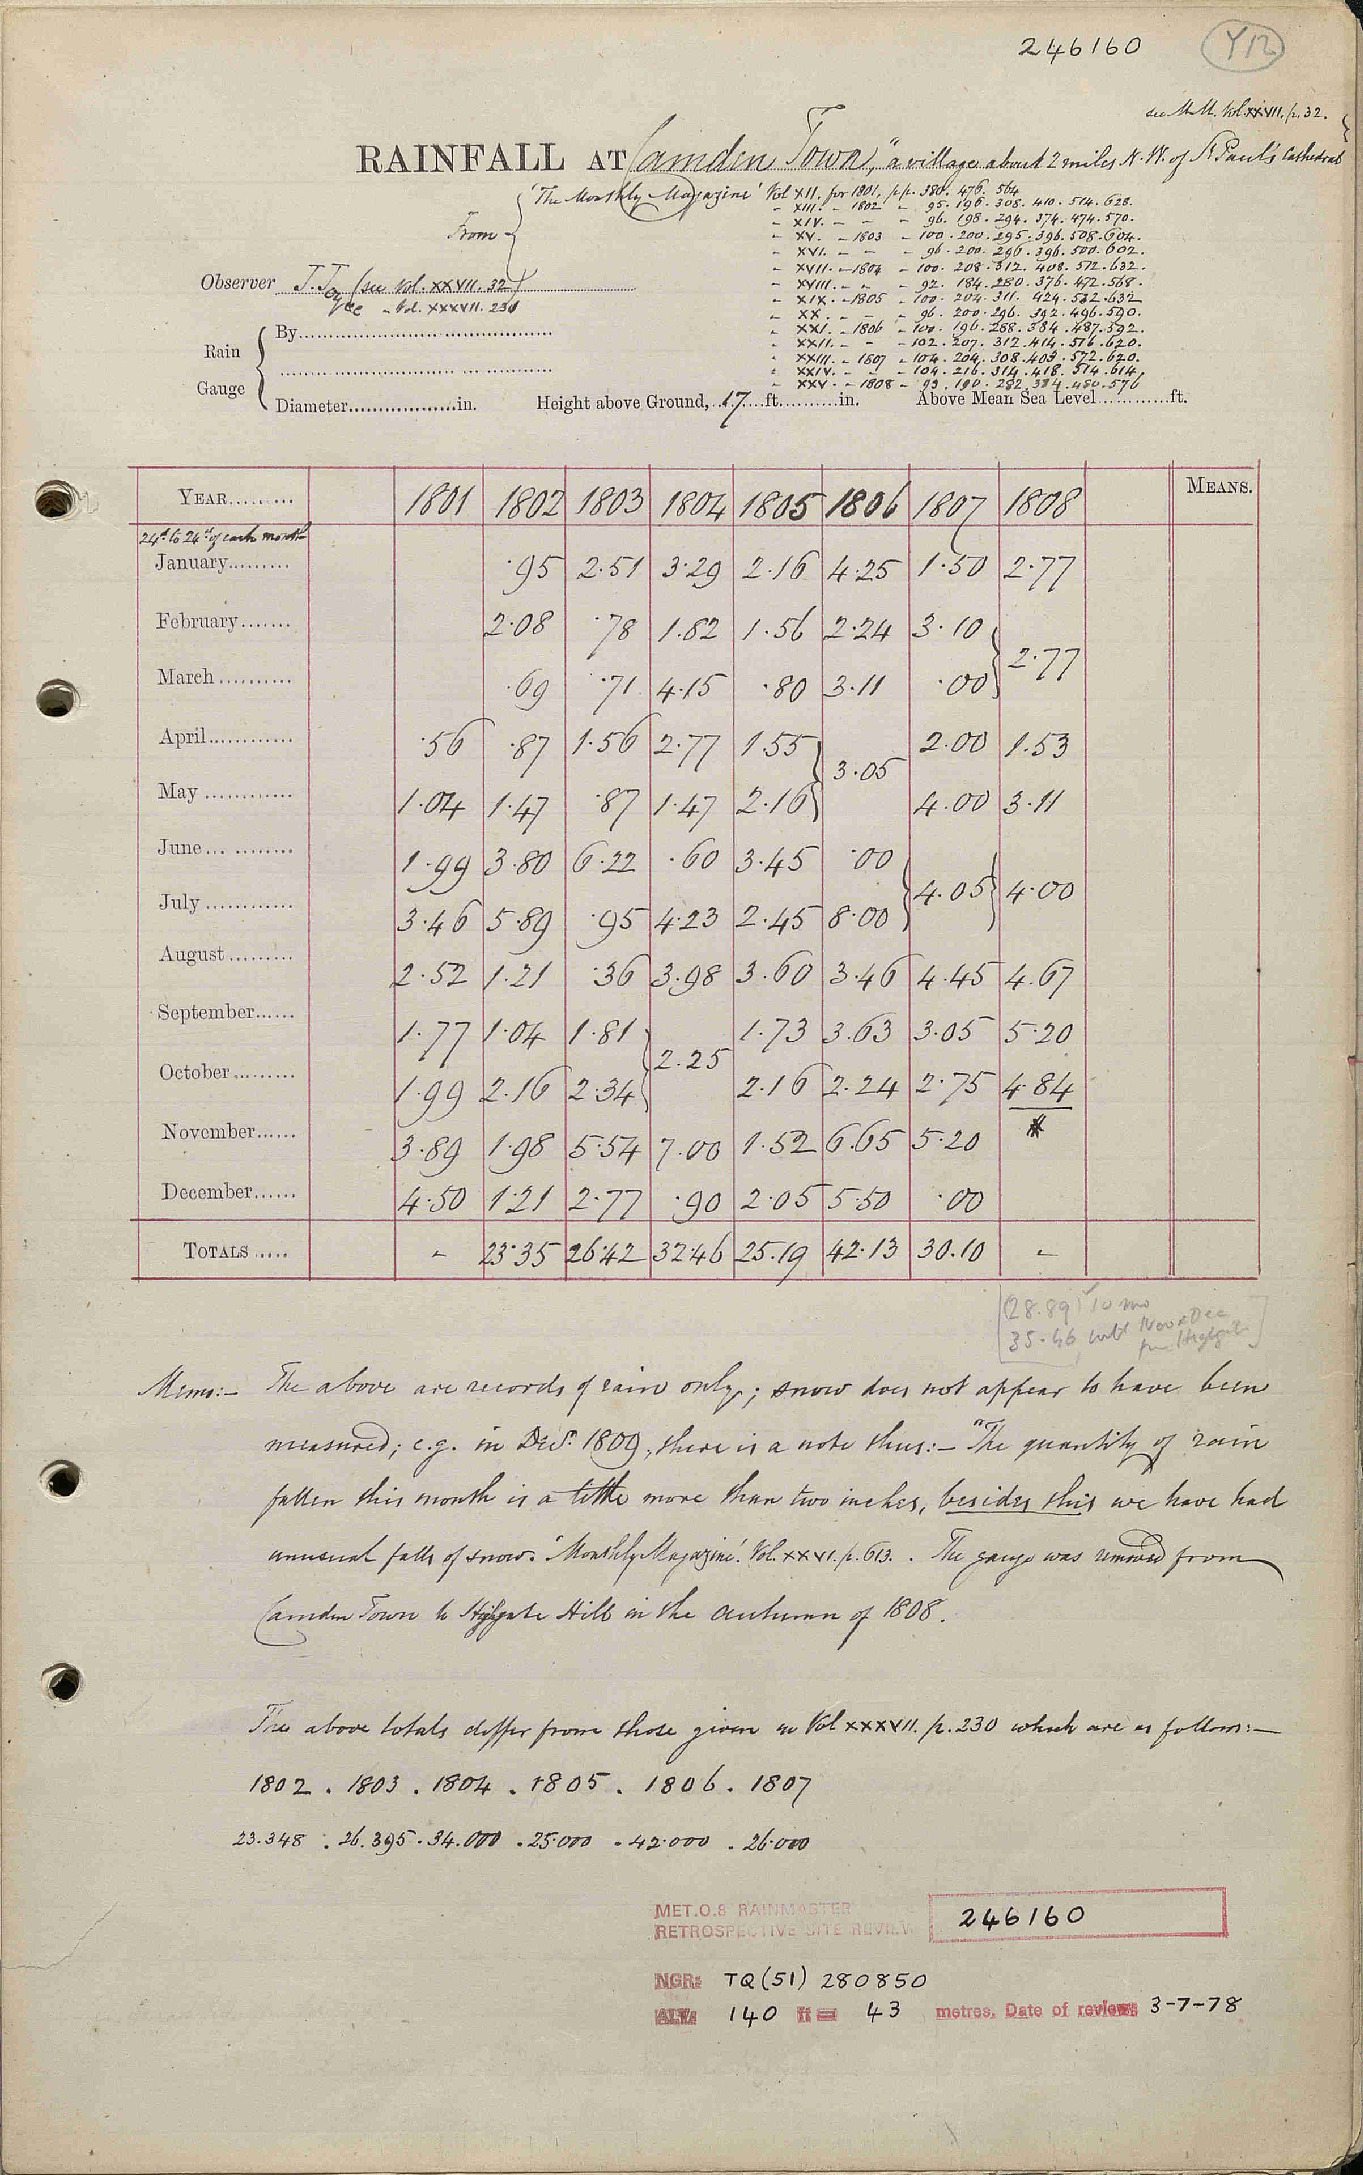 246160 Y12
see M.M. Vol XXVII. p. 32.
RAINFALL AT Camden Town, "a village about 2 miles N.W. of St Paul's Cathedral
From { 'The Monthly Magazine' Vol XII. for 1801. pp. 380. 476. 564
- XIII. - 1802 - 95. 196. 308. 410. 514. 628.
- XIV. - - - 96. 198. 294. 374. 474. 570.
- XV. - 1803 - 100. 200. 295. 396. 508. 604.
- XVI. - - - 96. 200. 296. 396. 500. 602.
- XVII. - 1804 - 100. 208. 312. 408. 512. 632.
- XVIII. - - - 92. 184. 280. 376. 472. 568.
- XIX. - 1805 - 100. 204. 311. 424. 532. 632
- XX. - - - 96. 200. 296. 392. 496. 590.
- XXI. - 1806 - 100. 196. 288. 384. 487. 592.
- XXII. - - - 102. 207. 312. 414. 516. 620.
- XXIII. - 1807 - 104. 204. 308. 409. 572. 620.
- XXIV. - - - 104. 216. 314. 418. 514. 614.
- XXV. - 1808 - 93. 190. 282. 384. 480. 576
Observer J. Joyce (see Vol. XXVII. 32)
- Vol. XXXVII. 230
Rain Gauge { By
Diameter in. Height above Ground, 17 ft. in. Above Mean Sea Level ft.
YEAR 1801 1802 1803 1804 1805 1806 1807 1808 MEANS.
24th to 24th of each month
January ·95 2·51 3·29 2·16 4·25 1·50 2·77
February 2·08 ·78 1·82 1·56 2·24 3·10
March ·69 ·71 4·15 ·80 3·11 ·00 } 2·77
April ·56 ·87 1·56 2·77 1·55 2·00 1·53
May 1·04 1·47 ·87 1·47 2·16 } 3·05 4·00 3·11
June 1·99 3·80 6·22 ·60 3·45 ·00
July 3·46 5·89 ·95 4·23 2·45 8·00 } 4·05 } 4·00
August 2·52 1·21 ·36 3·98 3·60 3·46 4·45 4·67
September 1·77 1·04 1·81 1·73 3·63 3·05 5·20
October 1·99 2·16 2·34 } 2·25 2·16 2·24 2·75 4·84
November 3·89 1·98 5·54 7·00 1·52 6·65 5·20 *
December 4·50 1·21 2·77 ·90 2·05 5·50 ·00
TOTALS - 23·35 26·42 32·46 25·19 42·13 30·10 -
[(28.89) 10 mo
35.46 with Nov & Dec
from Highgate]
Memo:- The above are records of rain only; snow does not appear to have been
measured; e.g. in Decr. 1809, there is a note thus:- "The quantity of rain
fallen this month is a little more than two inches, besides this we have had
unusual falls of snow. 'Monthly Magazine'. Vol. XXVI. p. 613. . The gauge was removed from
Camden Town to Highgate Hill in the autumn of 1808.
The above totals differ from those given in Vol XXXVII. p. 230 which are as follows:-
1802 . 1803 . 1804 . 1805 . 1806 . 1807
23·348 . 26.395 . 34.000 . 25.000 . 42.000 . 26.000
MET.O.8 RAINMASTER
RETROSPECTIVE SITE REVIEW 246160
NGR: TQ(51) 280850
ALT: 140 ft = 43 metres. Date of review: 3-7-78